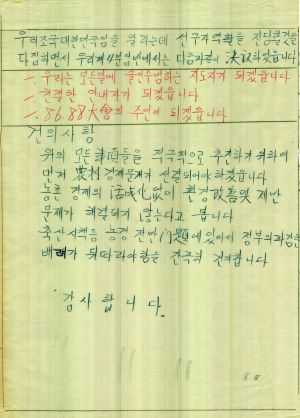 우리조국대한민국임을 알리는데 선구자역활을 전담할것을
다짐하면서 우리제4분임반에서는 다음과같이 決議하였습니다
一. 우리는 모든일에 솔선수범하는 지도자가 되겠읍니다
一. 친절한 안내자가 되겠읍니다
一. 86.88大會의 주인이 되겠읍니다
건의사항
위의 모든事項들을 적극적으로 추진하기위하여
먼저 農村경제문제가 선결되어야하겠습니다
농촌 경제의 活性化없이 환경改善및 제반
문제가 해결되지 않는다고 봅니다
축산시책등 농정 전반门題에있어서 정부의과감한
배려가 뒤따라야함을 간곡히 건의합니다
감사합니다.